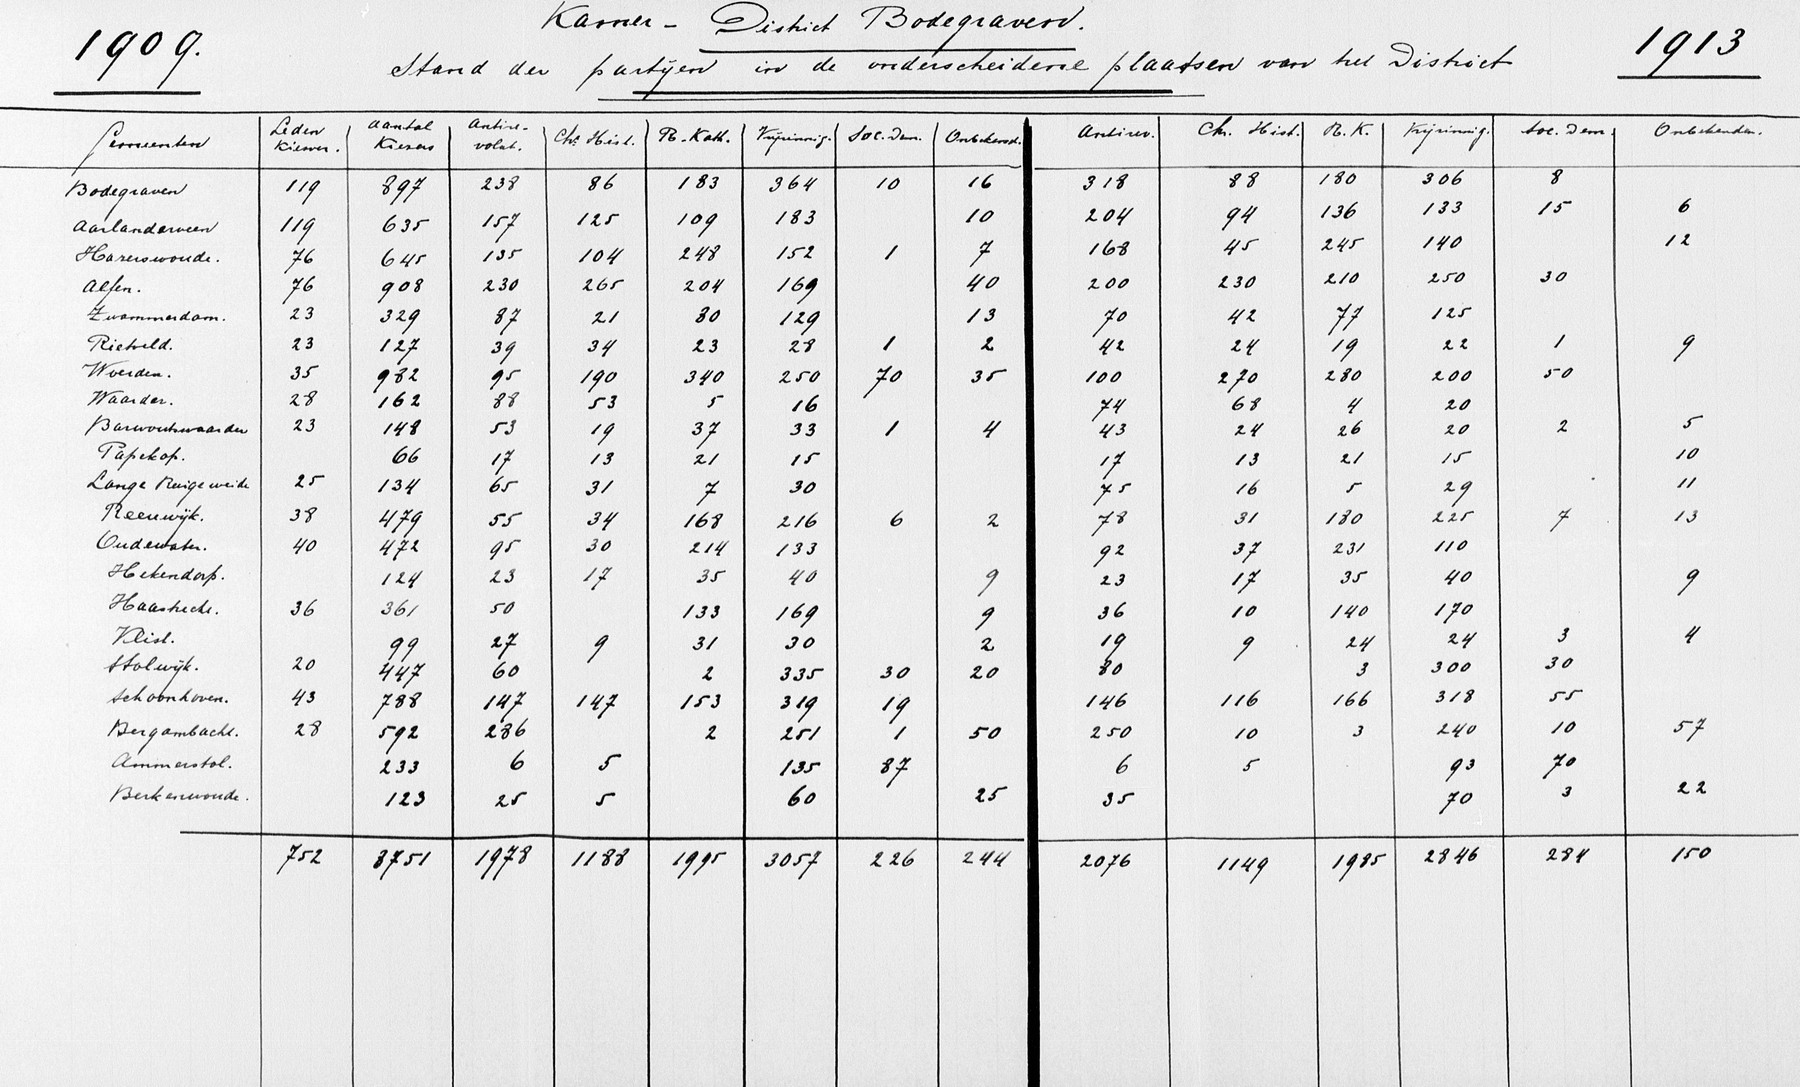 1909.
Kamer - District Bodegraven.
1913
Stand der partijen in de onderscheidene plaatsen van het District
Gemeenten | Leden Kiesver. | Aantal Kiezers | Antire-volut. | Chr. Hist. | R. Kath. | Vrijzinnig. | Soc. Dem. | Onbekend. | Antirev. | Chr. Hist. | R. K. | Vrijzinnig. | Soc. Dem. | Onbekenden.
Bodegraven 119 897 238 86 183 364 10 16 318 88 180 306 8
Aarlanderveen 119 635 157 125 109 183 10 204 94 136 133 15 6
Hazerswoude. 76 645 135 104 248 152 1 7 168 45 245 140 12
Alfen. 76 908 230 265 204 169 40 200 230 210 250 30
Zwammerdam. 23 329 87 21 80 129 13 70 42 77 125
Rietveld. 23 127 39 34 23 28 1 2 42 24 19 22 1 9
Woerden. 35 982 95 190 340 250 70 35 100 270 280 200 50
Waarder. 28 162 88 53 5 16 74 68 4 20
Barwoutswaarder 23 148 53 19 37 33 1 4 43 24 26 20 2 5
Papekop. 66 17 13 21 15 17 13 21 15 10
Lange Ruige weide 25 134 65 31 7 30 75 16 5 29 11
Reeuwijk. 38 479 55 34 168 216 6 2 78 31 180 225 7 13
Oudewater. 40 472 95 30 214 133 92 37 231 110
Hekendorp. 124 23 17 35 40 9 23 17 35 40 9
Haastrecht. 36 361 50 133 169 9 36 10 140 170
Vlist. 99 27 9 31 30 2 19 9 24 24 3 4
Stolwijk. 20 447 60 2 335 30 20 80 3 300 30
Schoonhoven. 43 788 147 147 153 319 19 146 116 166 318 55
Bergambacht. 28 592 286 2 251 1 50 250 10 3 240 10 57
Ammerstol. 233 6 5 135 87 6 5 93 70
Berkenwoude. 123 25 5 60 25 35 70 3 22
752 8751 1978 1188 1995 3057 226 244 2076 1149 1985 2846 284 150